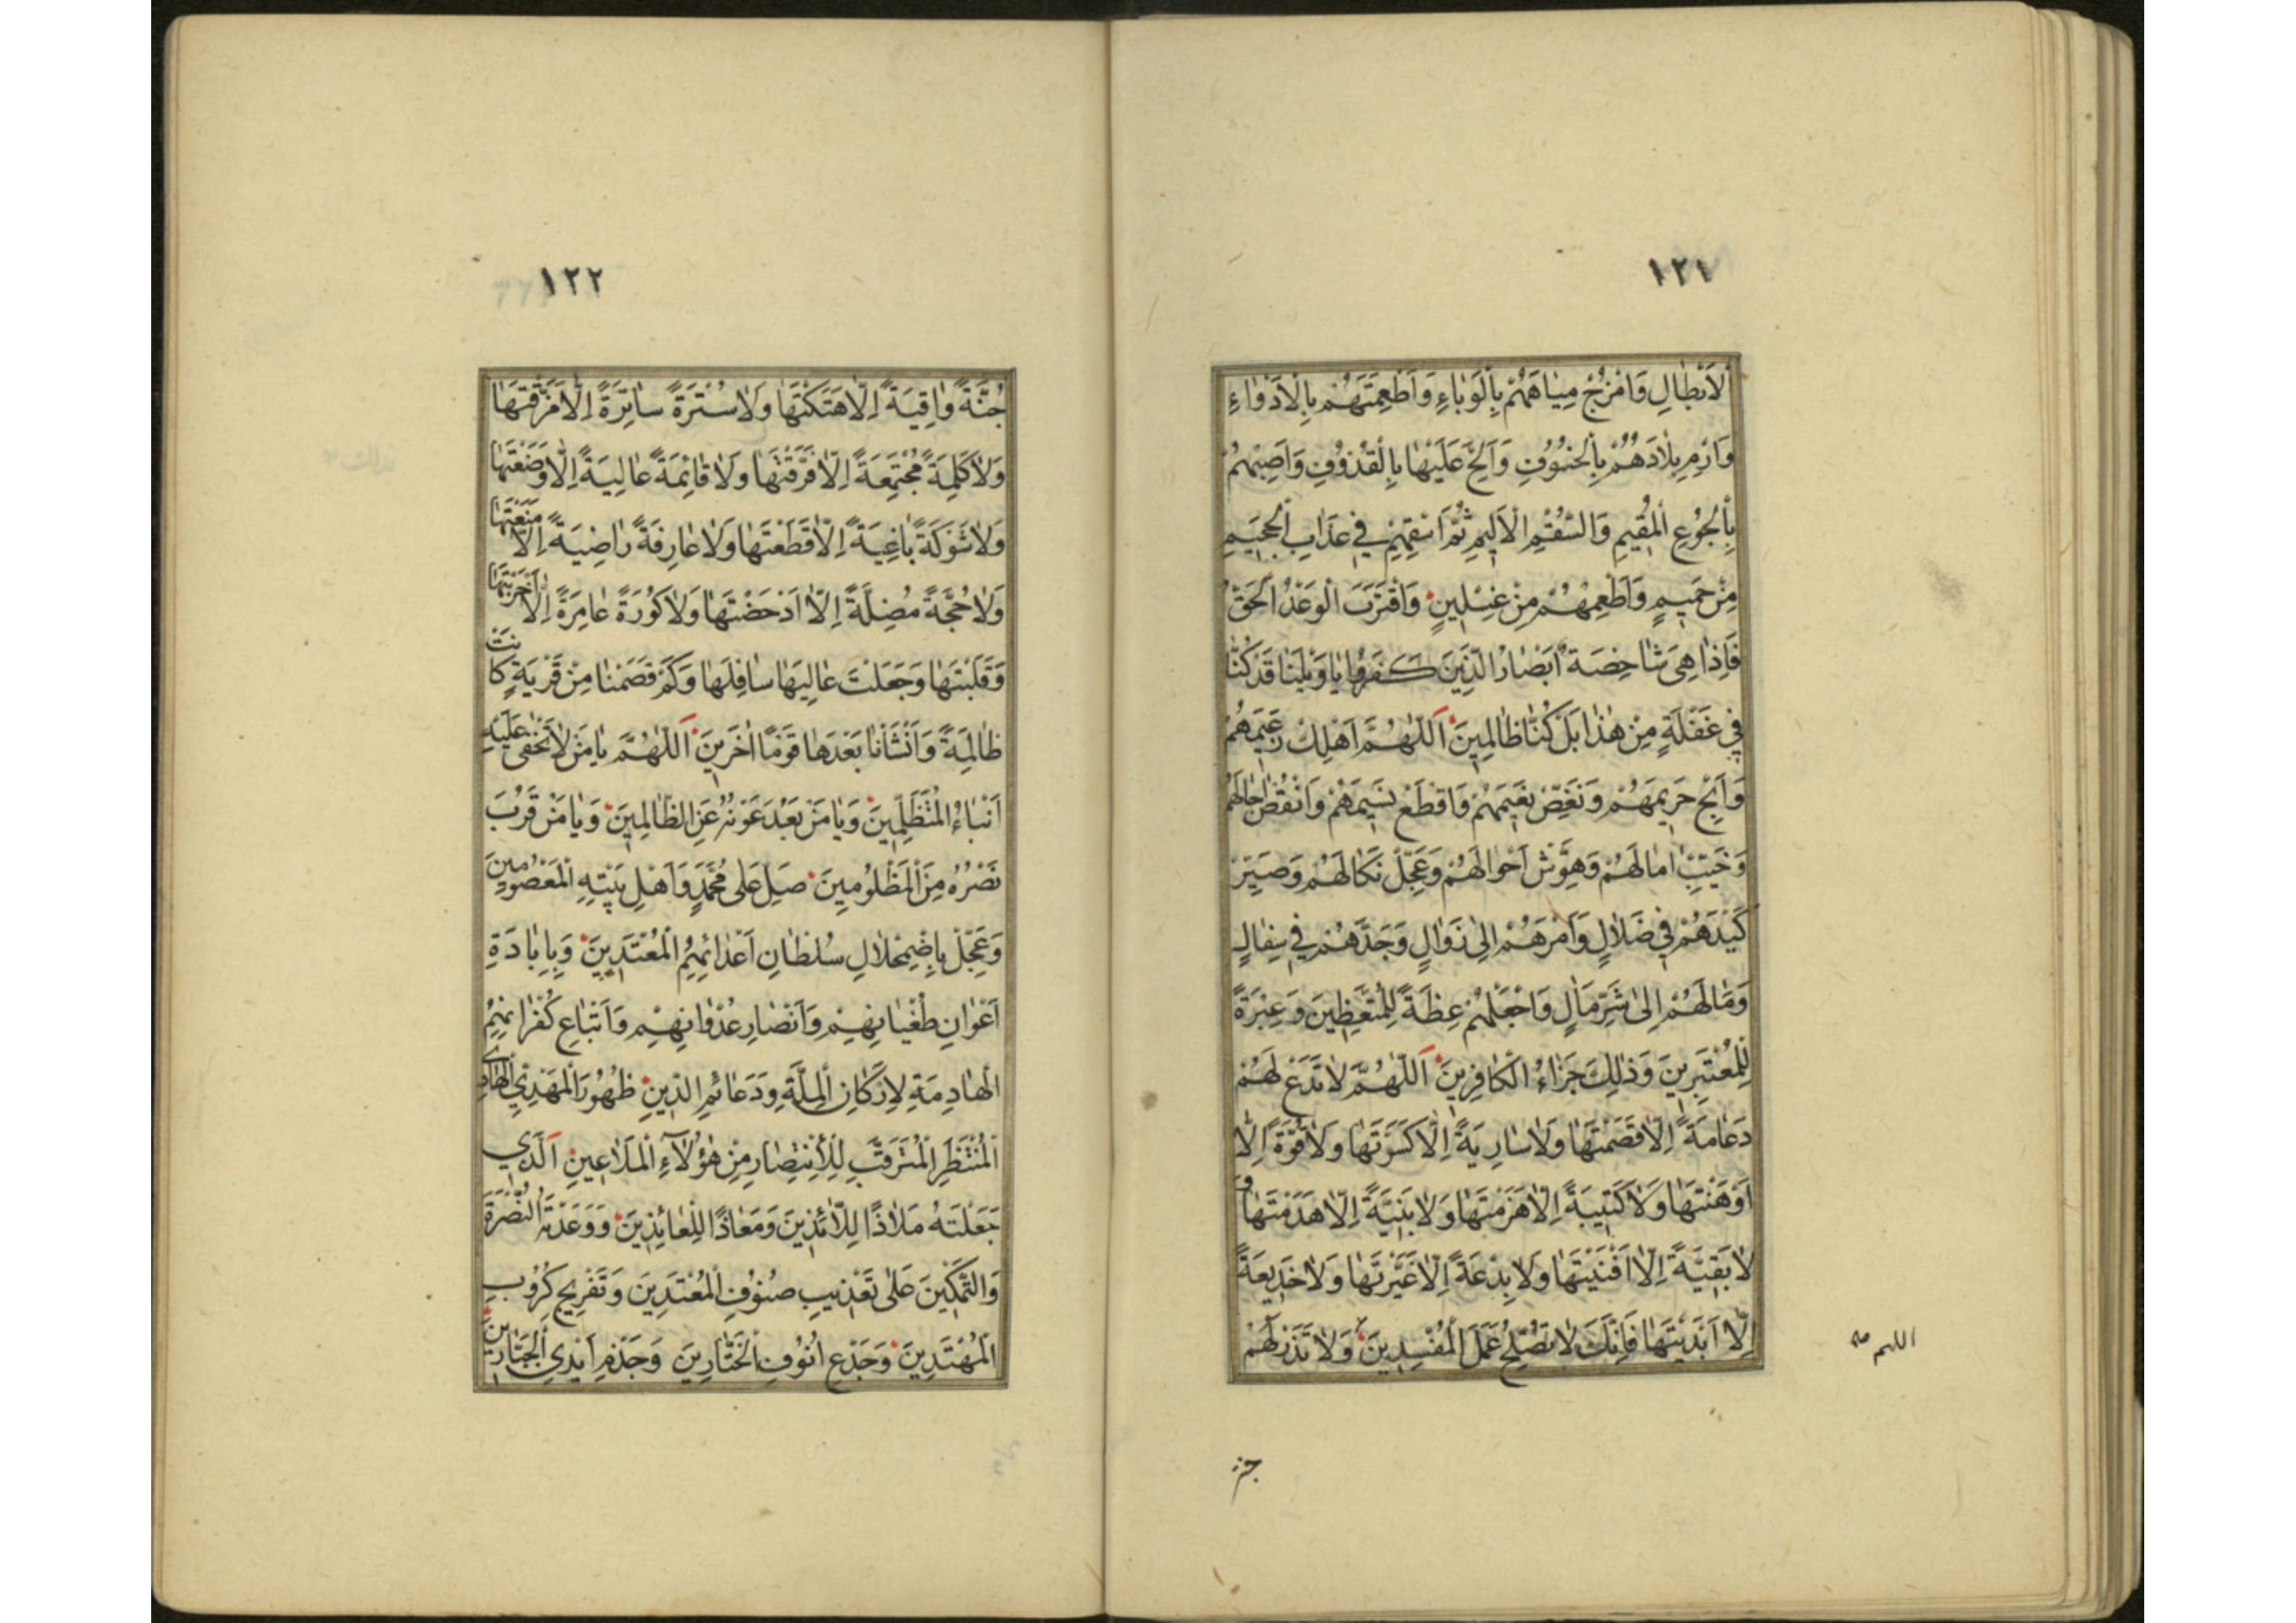 ١٢١
لَابْطَالِ وَامْزُجْ مِيَاهَهُمْ بِالْوَبَاءِ وَاَطْعِمَتَهُمْ بِالْاَدْوَاءِ
وَارْمِ بِلَادَهُمْ بِالْخُسُوفِ وَاَلِحَّ عَلَيْهَا بِالْقُذُوفِ وَاَصِبْهُمْ
بِالْجُوعِ الْمُقِيمِ وَالسُّقْمِ الْاَلِيمِ ثُمَّ اسْقِهِمْ فِي عَذَابِ الْجَحِيمِ
مِنْ حَمِيمٍ وَاَطْعِمْهُمْ مِنْ غِسْلِينٍ وَاقْتَرَبَ الْوَعْدُ الْحَقُّ
فَاِذَا هِيَ شَاخِصَةٌ اَبْصَارُ الَّذِينَ كَفَرُوا يَا وَيْلَنَا قَدْ كُنَّا
فِي غَفْلَةٍ مِنْ هٰذَا بَلْ كُنَّا ظَالِمِينَ اَللّٰهُمَّ اَهْلِكْ زَعِيمَهُمْ
وَاَبِحْ حَرِيمَهُمْ وَنَغِّصْ نَعِيمَهُمْ وَاقْطَعْ نَسِيمَهُمْ وَانْقُضْ حَالَهُمْ
وَخَيِّبْ اٰمَالَهُمْ وَهَوِّشْ اَحْوَالَهُمْ وَعَجِّلْ نَكَالَهُمْ وَصَيِّرْ
كَيْدَهُمْ فِي ضَلَالٍ وَاَمْرَهُمْ اِلٰى زَوَالٍ وَجَدَّهُمْ فِي سِفَالٍ
وَمَالَهُمْ اِلٰى شَرِّ مَاٰلٍ وَاجْعَلْهُمْ عِظَةً لِلْمُتَّعِظِينَ وَعِبْرَةً
لِلْمُعْتَبِرِينَ وَذٰلِكَ جَزَاءُ الْكَافِرِينَ اَللّٰهُمَّ لَا تَدَعْ لَهُمْ
دَعَامَةً اِلَّا قَصَمْتَهَا وَلَا سَارِيَةً اِلَّا كَسَرْتَهَا وَلَا قُوَّةً اِلَّا
اَوْهَنْتَهَا وَلَا كَتِيبَةً اِلَّا هَزَمْتَهَا وَلَا بَنِيَّةً اِلَّا هَدَمْتَهَا وَ
لَا بَقِيَّةً اِلَّا اَفْنَيْتَهَا وَلَا بِدْعَةً اِلَّا غَيَّرْتَهَا وَلَا خَدِيعَةً
اِلَّا اَبْدَيْتَهَا فَاِنَّكَ لَا تُصْلِحُ عَمَلَ الْمُفْسِدِينَ وَلَا تَذَرْ لَهُمْ
اللهم صل
جنة
١٢٢
جُنَّةً وَاقِيَةً اِلَّا هَتَكْتَهَا وَلَا سُتْرَةً سَاتِرَةً اِلَّا مَزَّقْتَهَا
وَلَا كَلِمَةً مُجْتَمِعَةً اِلَّا فَرَّقْتَهَا وَلَا قَائِمَةً عَالِيَةً اِلَّا وَضَعْتَهَا
وَلَا شَوْكَةً بَاغِيَةً اِلَّا قَطَعْتَهَا وَلَا عَارِفَةً رَاضِيَةً اِلَّا مَنَعْتَهَا
وَلَا حُجَّةً مُضِلَّةً اِلَّا اَدْحَضْتَهَا وَلَا كُورَةً عَامِرَةً اِلَّا اَخْرَبْتَهَا
وَقَلَبْتَهَا وَجَعَلْتَ عَالِيَهَا سَافِلَهَا وَكَمْ قَصَمْنَا مِنْ قَرْيَةٍ كَانَتْ
ظَالِمَةً وَاَنْشَاْنَا بَعْدَهَا قَوْمًا اٰخَرِينَ اَللّٰهُمَّ يَا مَنْ لَا تَخْفٰى عَلَيْهِ
اَنْبَاءُ الْمُتَظَلِّمِينَ وَيَا مَنْ بَعُدَ عَوْنُهُ عَنِ الظَّالِمِينَ وَيَا مَنْ قَرُبَ
نَصْرُهُ مِنَ الْمَظْلُومِينَ صَلِّ عَلٰى مُحَمَّدٍ وَاَهْلِ بَيْتِهِ الْمَعْصُومِينَ
وَعَجِّلْ بِاضْمِحْلَالِ سُلْطَانِ اَعْدَائِهِمُ الْمُعْتَدِينَ وَبِاِبَادَةِ
اَعْوَانِ طُغْيَانِهِمْ وَاَنْصَارِ عُدْوَانِهِمْ وَاَتْبَاعِ كُفْرَانِهِمُ
الْهَادِمَةِ لِاَرْكَانِ الْمِلَّةِ وَدَعَائِمِ الدِّينِ ظُهُورَ الْمَهْدِيِّ الْهَادِي
الْمُنْتَظَرِ الْمُتَرَقَّبِ لِلْاِنْتِصَارِ مِنْ هٰؤُلَاءِ الْمَلَاعِينِ اَلَّذِي
جَعَلْتَهُ مَلَاذًا لِلَّائِذِينَ وَمَعَاذًا لِلْعَائِذِينَ وَوَعَدْتَهُ النُّصْرَةَ
وَالتَّمْكِينَ عَلٰى تَعْذِيبِ صُنُوفِ الْمُعْتَدِينَ وَتَفْرِيجِ كُرُوبِ
الْمُهْتَدِينَ وَجَدْعِ اُنُوفِ الْخَتَّارِينَ وَجَذْمِ اَيْدِي الْجَبَّارِينَ